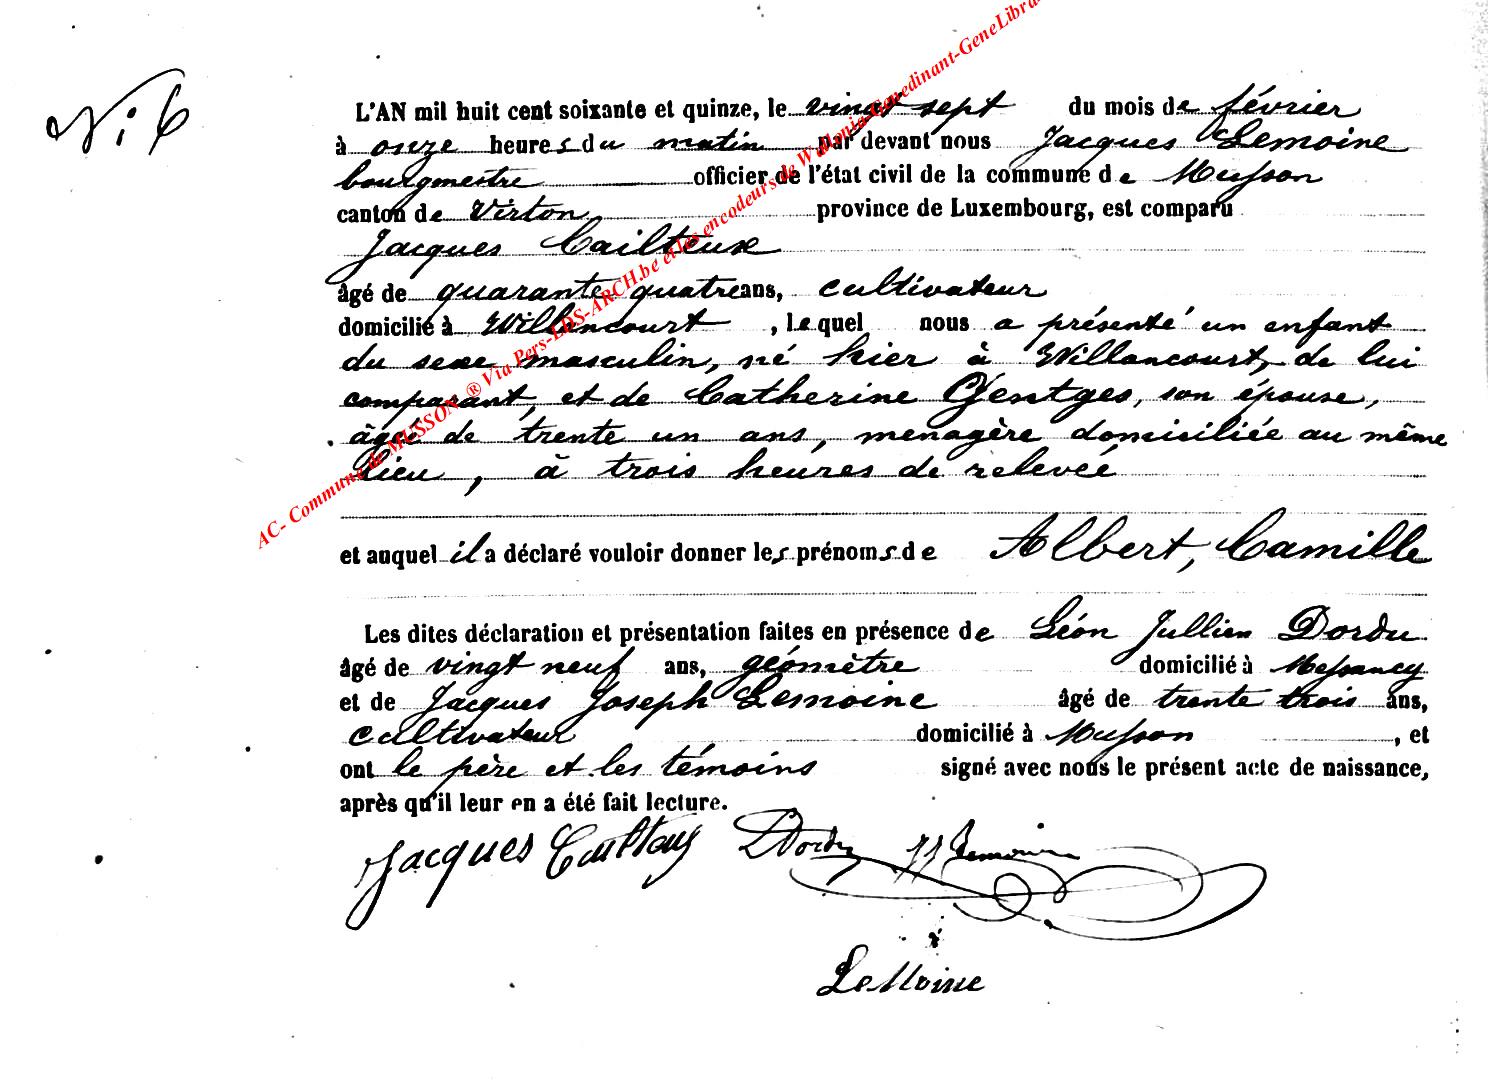 N: 6
L'AN mil huit cent soixante et quinze, le vingt sept du mois de février
à onze heures du matin par devant nous Jacques Lemoine
bourgmestre officier de l'état civil de la commune de Musson
canton de Virton province de Luxembourg, est comparu
Jacques Cailteux
âgé de quarante quatre ans, cultivateur
domicilié à Willancourt, lequel nous a présenté un enfant
du sexe masculin, né hier à Willancourt, de lui
comparant, et de Catherine Gentges, son épouse,
âgée de trente un ans, menagère domiciliée au même
lieu, à trois heures de relevée
et auquel il a déclaré vouloir donner les prénoms de Albert, Camille
Les dites déclaration et présentation faites en présence de Léon Jullien Dordu
âgé de vingt neuf ans, géomètre domicilié à Messancy
et de Jacques Joseph Lemoine âgé de trente trois ans,
cultivateur domicilié à Musson, et
ont le père et les témoins signé avec nous le présent acte de naissance,
après qu'il leur en a été fait lecture.
Jacques LDordu JJ Lemoine
LeMoine
AC- Commune de MUSSON ® Via Pers-LDS-ARCH.be et les encodeurs de Wallonia-Genedinant-GeneLibra